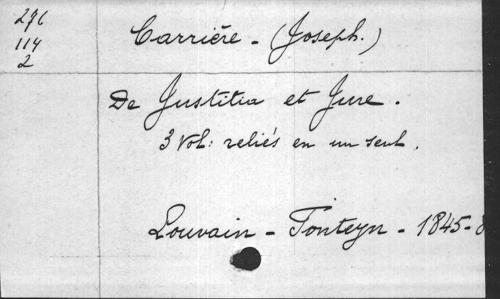 276
114
2
Carrière - (Joseph.)
De Justitia et Jure.
3 Vol: reliés en un seul.
Louvain - Fonteyn - 1845-8